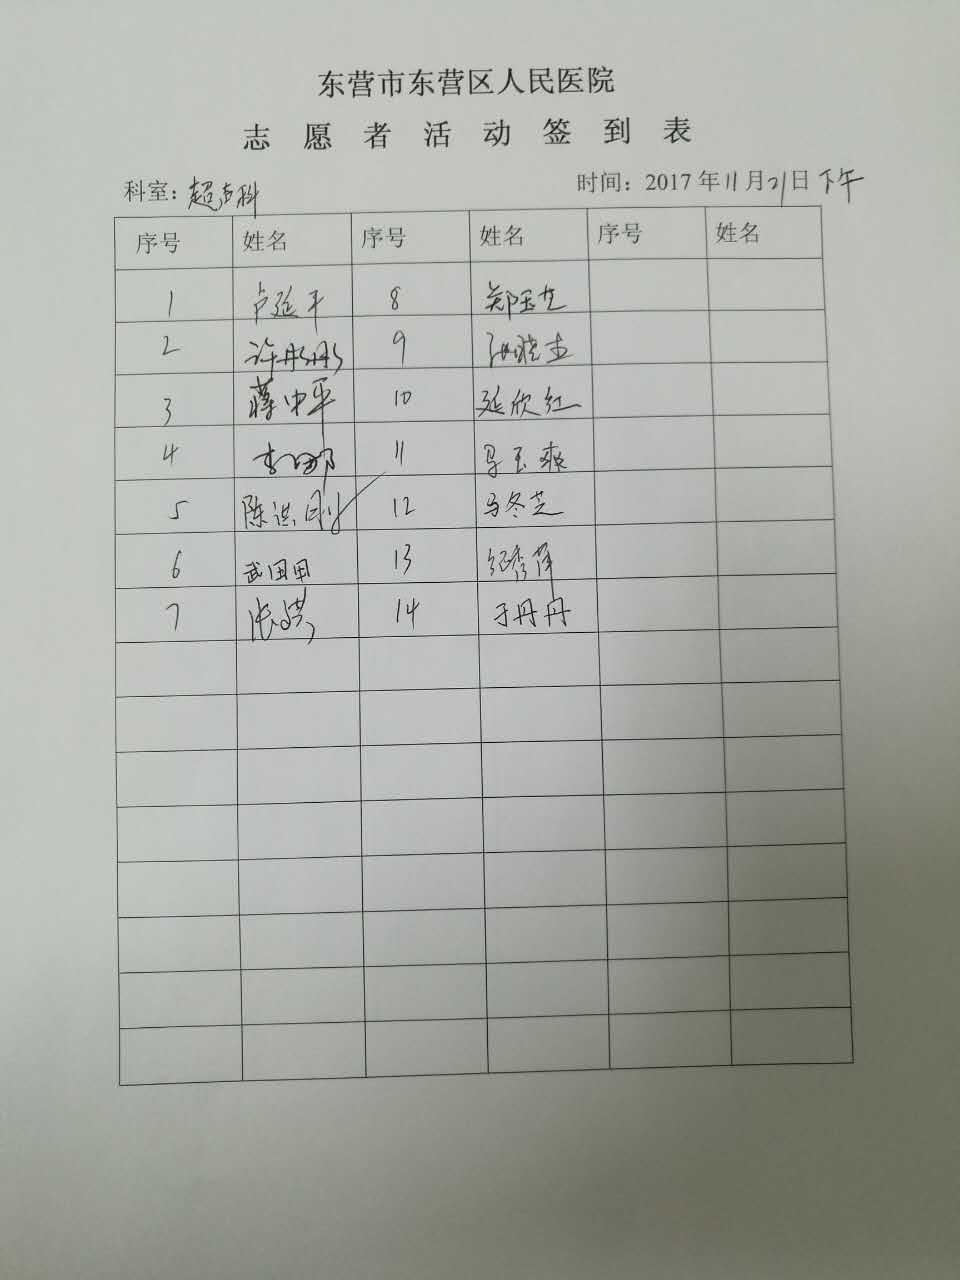 东营市东营区人民医院
志愿者活动签到表
科室：超声科 时间：2017年11月21日下午
序号 姓名 序号 姓名 序号 姓名
1 卢延平 8 郑玉芝
2 许彤彤 9
3 蒋中平 10 延欣红
4 11 马玉爽
5 陈洪刚 12 马冬芝
6 武田田 13 纪秀萍
7 张 14 于丹丹